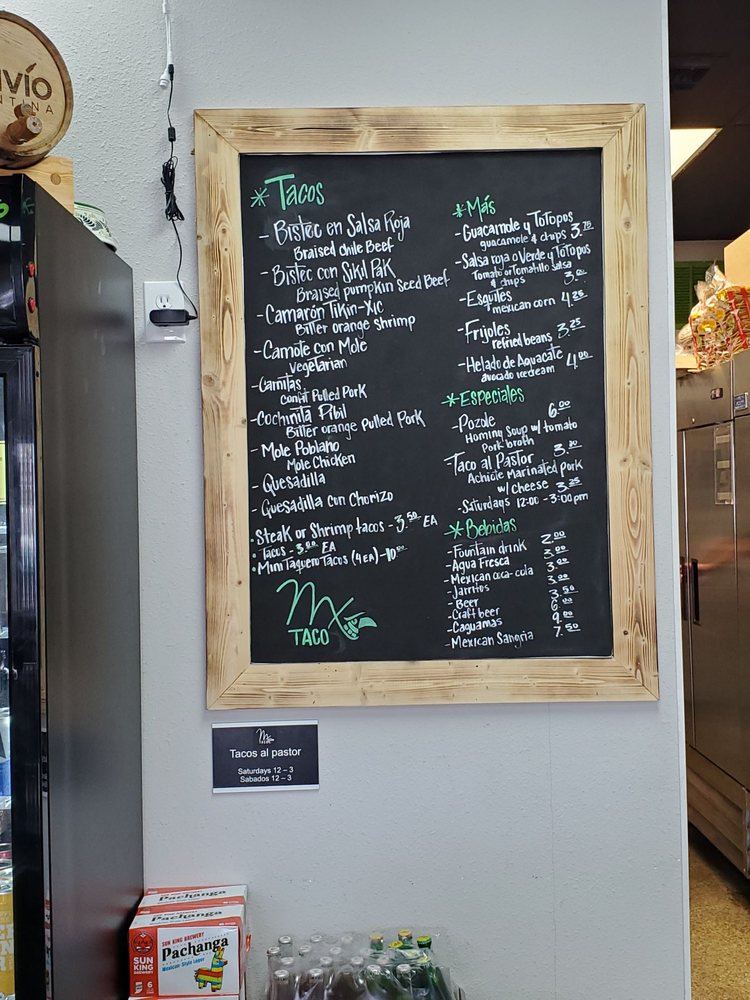 vío
NTINA
* Tacos
- Bistec en Salsa Roja
Braised chile Beef
- Bistec con Sikil Pak
Braised pumpkin Seed Beef
- Camarón Tikin-Xic
Bitter orange shrimp
- Camote con Mole
Vegetarian
- Carnitas
Confit Pulled Pork
- Cochinita Pibil
Bitter orange pulled Pork
- Mole Poblano
Mole Chicken
- Quesadilla
- Quesadilla con Chorizo
• Steak or Shrimp tacos - 3.50 EA
• Tacos - 3.00 EA
• Mini Taquero Tacos (4 EA) - 10.00
Mx
TACO
* Más
- Guacamole y Totopos
guacamole & chips 3.75
- Salsa roja o Verde y Totopos
Tomato or Tomatillo Salsa
& chips 3.00
- Esquites
mexican corn 4.25
- Frijoles
refried beans 3.25
- Helado de Aguacate
avocado icecream 4.00
* Especiales
- Pozole 6.00
Hominy Soup w/ tomato
Pork broth
- Taco al Pastor
Achiote Marinated pork
w/ cheese 3.25
- Saturdays 12:00 - 3:00pm
* Bebidas
- Fountain drink 2.00
- Agua Fresca 3.00
- Mexican coca-cola 3.00
- Jarritos 3.00
- Beer 3.50
- Craft beer 6.00
- Caguamas 9.00
- Mexican Sangria 7.50
Mx
Tacos al pastor
Saturdays 12 – 3
Sabados 12 – 3
Pachanga
Pachanga
SUN KING BREWERY
Pachanga
Mexican Style Lager
SUN
KING
6